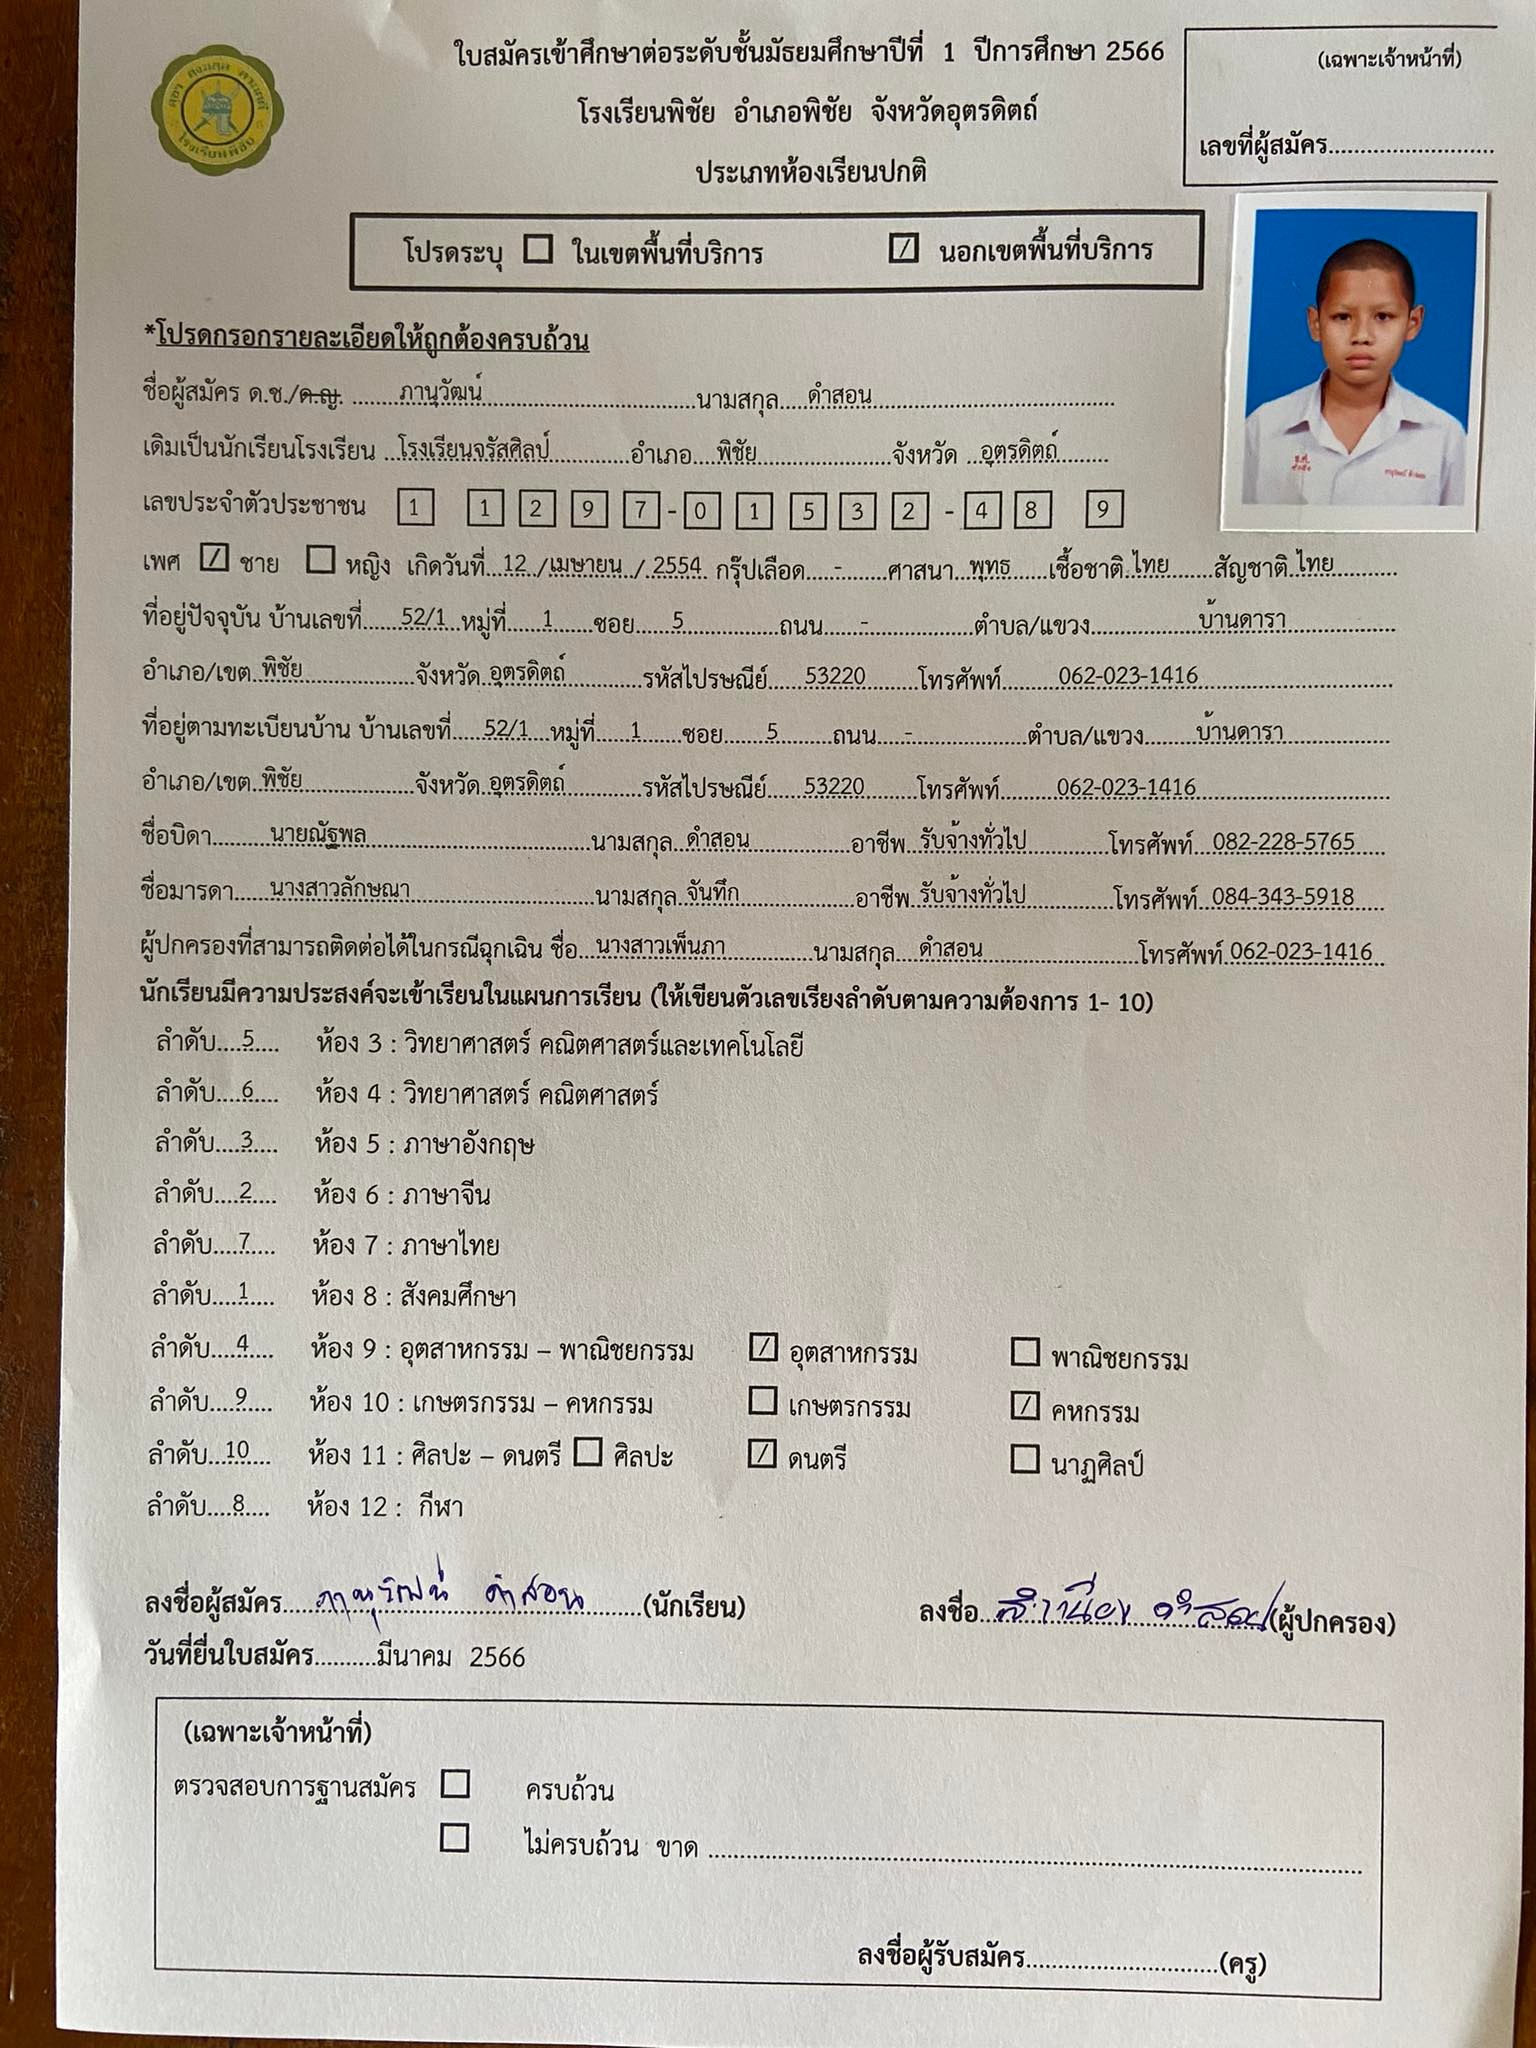 ใบสมัครเข้าศึกษาต่อระดับชั้นมัธยมศึกษาปีที่ 1 ปีการศึกษา 2566
(เฉพาะเจ้าหน้าที่)
โรงเรียนพิชัย อำเภอพิชัย จังหวัดอุตรดิตถ์
เลขที่ผู้สมัคร..........................
ประเภทห้องเรียนปกติ
โรงเรียนพิชัย
โปรดระบุ ☐ ในเขตพื้นที่บริการ ☑ นอกเขตพื้นที่บริการ
*โปรดกรอกรายละเอียดให้ถูกต้องครบถ้วน
ชื่อผู้สมัคร ด.ช./ด.ญ. ......ภานุวัฒน์..............................นามสกุล....ดำสอน...................................
เดิมเป็นนักเรียนโรงเรียน ..โรงเรียนจรัสศิลป์............อำเภอ...พิชัย....................จังหวัด ..อุตรดิตถ์........
เลขประจำตัวประชาชน 1 1 2 9 7 - 0 1 5 3 2 - 4 8 9
เพศ ☑ ชาย ☐ หญิง เกิดวันที่...12 ./เมษายน ./ 2554. กรุ๊ปเลือด....-......ศาสนา..พุทธ.....เชื้อชาติ.ไทย.......สัญชาติ.ไทย..........
ที่อยู่ปัจจุบัน บ้านเลขที่......52/1..หมู่ที่.....1......ซอย......5...............ถนน.......-...............ตำบล/แขวง................บ้านดารา.................
อำเภอ/เขต.พิชัย..................จังหวัด.อุตรดิตถ์............รหัสไปรษณีย์......53220........โทรศัพท์.........062-023-1416..............................
ที่อยู่ตามทะเบียนบ้าน บ้านเลขที่.....52/1...หมู่ที่.....1......ซอย.......5.........ถนน....-..................ตำบล/แขวง........บ้านดารา.................
อำเภอ/เขต.พิชัย..................จังหวัด.อุตรดิตถ์............รหัสไปรษณีย์......53220........โทรศัพท์.........062-023-1416..............................
ชื่อบิดา.........นายณัฐพล...................................นามสกุล..ดำสอน................อาชีพ..รับจ้างทั่วไป.............โทรศัพท์...082-228-5765.....
ชื่อมารดา......นางสาวลักษณา............................นามสกุล.จันทึก...................อาชีพ.รับจ้างทั่วไป..............โทรศัพท์..084-343-5918.....
ผู้ปกครองที่สามารถติดต่อได้ในกรณีฉุกเฉิน ชื่อ..นางสาวเพ็นภา..............นามสกุล....ดำสอน.........................โทรศัพท์.062-023-1416..
นักเรียนมีความประสงค์จะเข้าเรียนในแผนการเรียน (ให้เขียนตัวเลขเรียงลำดับตามความต้องการ 1- 10)
ลำดับ....5.... ห้อง 3 : วิทยาศาสตร์ คณิตศาสตร์และเทคโนโลยี
ลำดับ....6.... ห้อง 4 : วิทยาศาสตร์ คณิตศาสตร์
ลำดับ....3.... ห้อง 5 : ภาษาอังกฤษ
ลำดับ....2.... ห้อง 6 : ภาษาจีน
ลำดับ....7.... ห้อง 7 : ภาษาไทย
ลำดับ....1.... ห้อง 8 : สังคมศึกษา
ลำดับ....4.... ห้อง 9 : อุตสาหกรรม – พาณิชยกรรม ☑ อุตสาหกรรม ☐ พาณิชยกรรม
ลำดับ....9.... ห้อง 10 : เกษตรกรรม – คหกรรม ☐ เกษตรกรรม ☑ คหกรรม
ลำดับ...10.... ห้อง 11 : ศิลปะ – ดนตรี ☐ ศิลปะ ☑ ดนตรี ☐ นาฏศิลป์
ลำดับ....8.... ห้อง 12 : กีฬา
ลงชื่อผู้สมัคร.....ภานุวัฒน์ ดำสอน........(นักเรียน) ลงชื่อ..สำเนียง ดำสอน(ผู้ปกครอง)
วันที่ยื่นใบสมัคร..........มีนาคม 2566
(เฉพาะเจ้าหน้าที่)
ตรวจสอบการฐานสมัคร ☐ ครบถ้วน
☐ ไม่ครบถ้วน ขาด ..........................................................................................
ลงชื่อผู้รับสมัคร..............................(ครู)